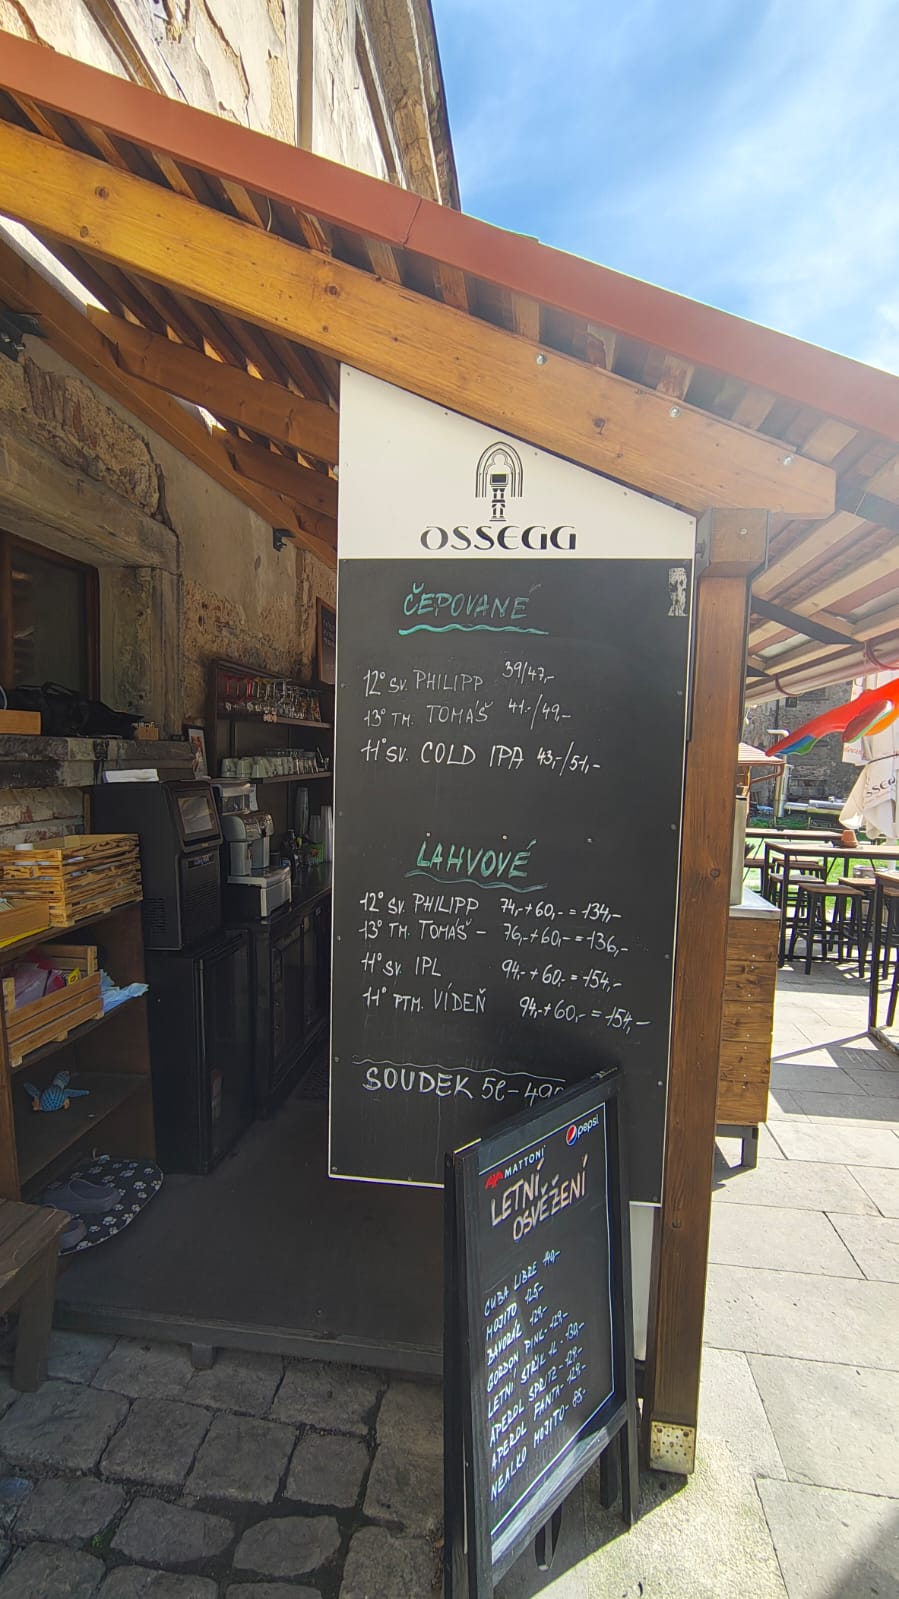 OSSEGG
ČEPOVANÉ
12° SV. PHILIPP 39/47,-
13° TM. TOMÁŠ 41,-/49,-
11° SV. COLD IPA 43,-/51,-
LAHVOVÉ
12° SV. PHILIPP 74,-+60,-=134,-
13° TM. TOMÁŠ - 76,-+60,-=136,-
11° SV. IPL 94,-+60,-=154,-
11° PTM. VÍDEŇ 94,-+60,-=154,-
SOUDEK 5l - 495
MATTONI pepsi
LETNÍ
OSVĚŽENÍ
CUBA LIBRE
MOJITO 125,-
BAVORÁK 129,-
GORDON PINK - 129,-
LETNÍ STŘIK 1L - 130,-
APEROL SPRITZ - 129,-
APEROL FANTA - 129,-
NEALKO MOJITO - 85,-